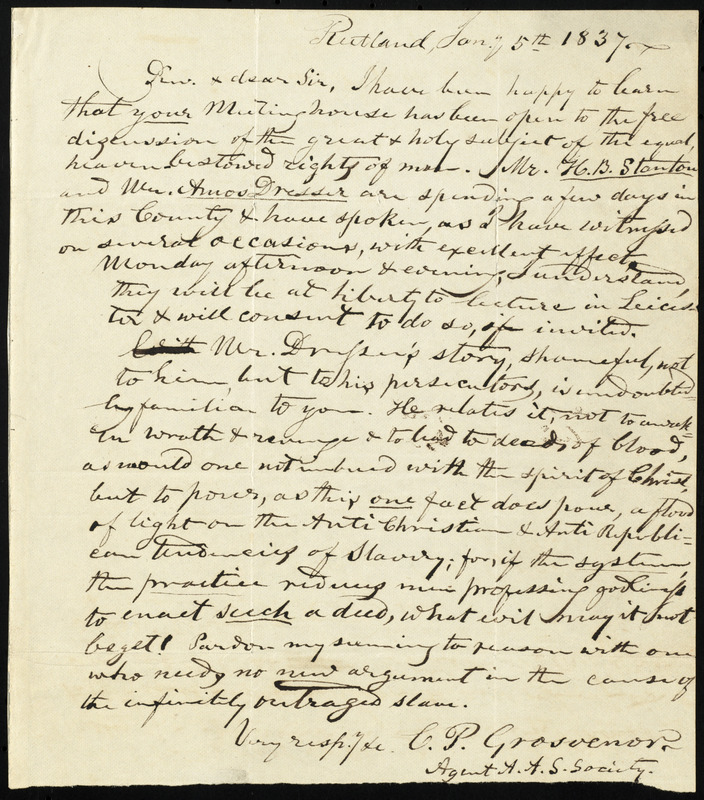 Rutland, Jany 5th 1837.
Rev. & dear Sir, I have been happy to learn
that your Meeting house has been open to the free
discussion of the great & holy subject of the equal,
heaven-bestowed rights of man. Mr. H. B. Stanton
and Mr. Amos Dresser are spending a few days in
this County & have spoken, as I have witnessed
on several occasions, with excellent effect.
Monday afternoon & evening, I understand,
they will be at liberty to lecture in Leices-
ter & will consent to do so, if invited.
Mr. Dresser's story, shameful, not
to him, but to his persecutors, is undoubted-
ly familiar to you. He relates it, not to awak-
en wrath & revenge & to lead to deeds of blood,
as would one not imbued with the spirit of Christ,
but to pour, as this one fact does pour, a flood
of light on the Anti Christian & Anti Republi-
can tendencies of Slavery; for, if the system
the practice reduces men professing godliness
to enact such a deed, what evil may it not
beget! Pardon my seeming to reason with one
who needs no new argument in the cause of
the infinitely outraged slave.
Very resp'y &c. C. P. Grosvenor.
Agent A. A. S. Society.